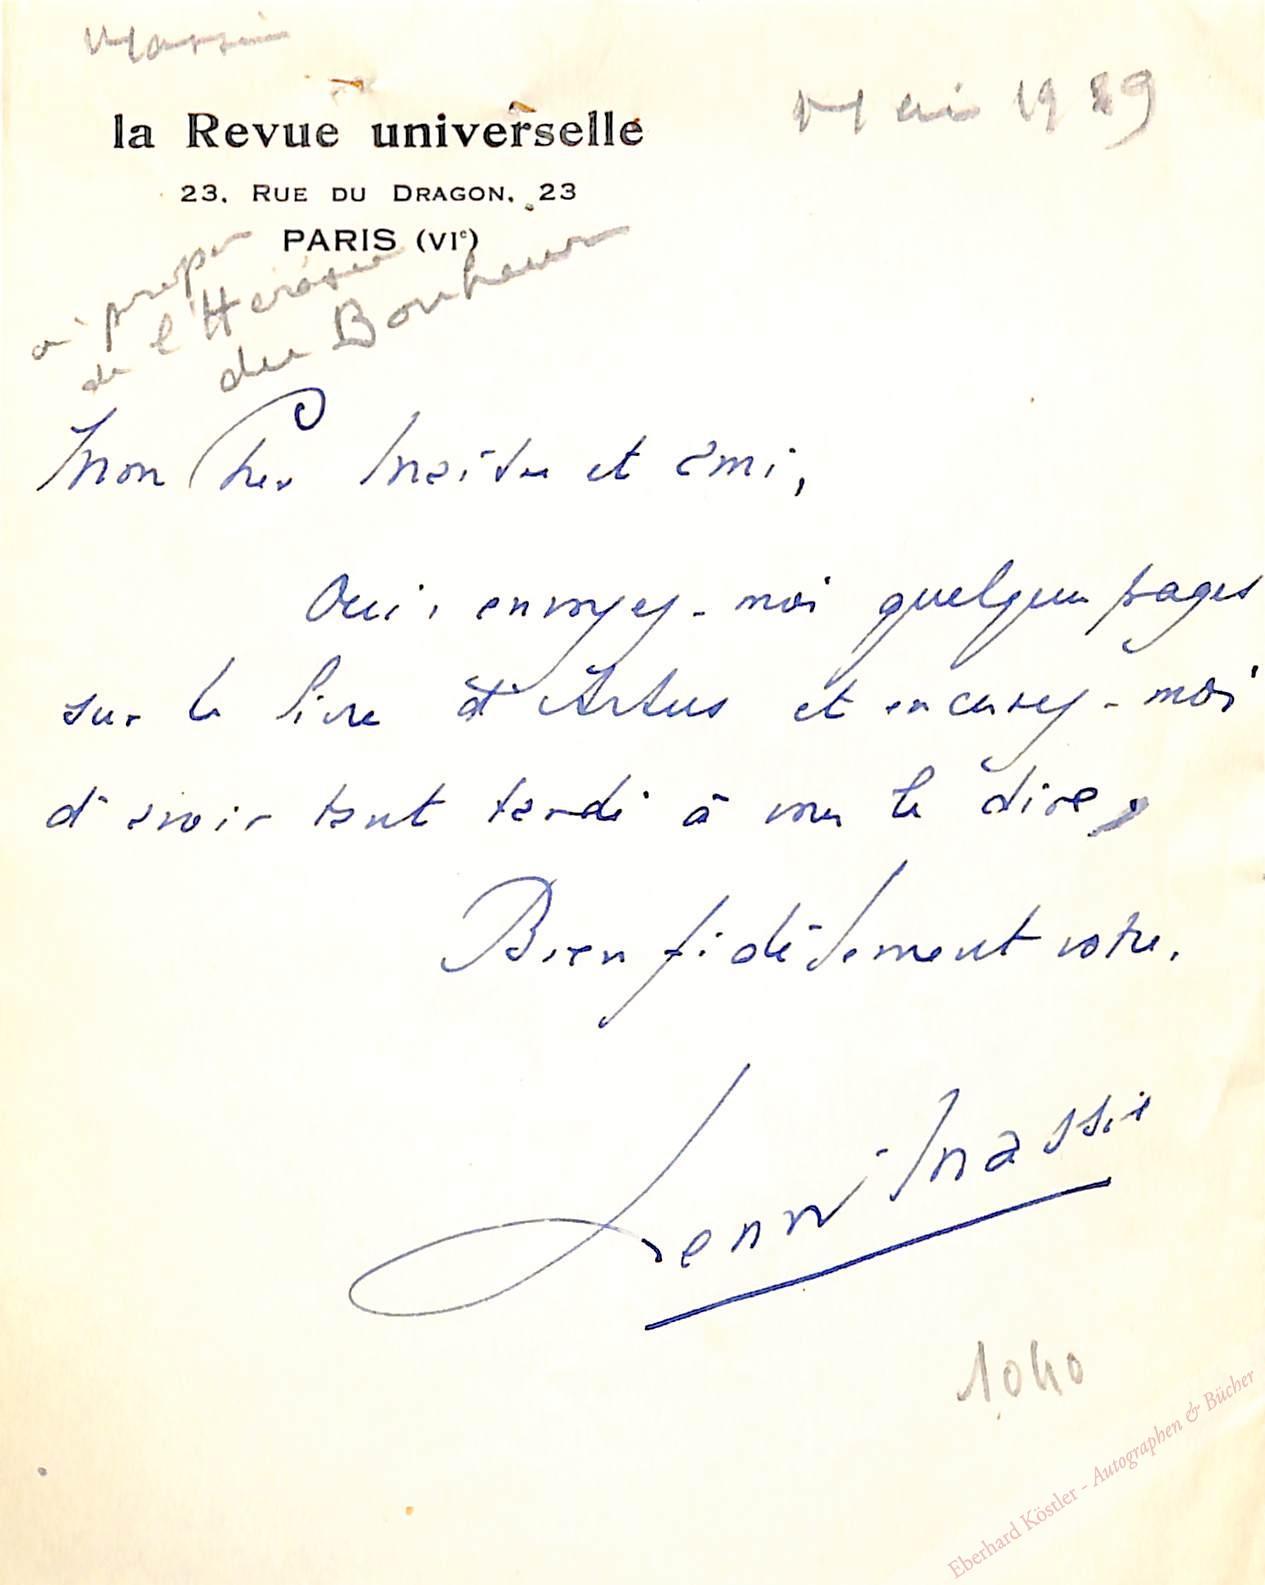 Massis
Mai 1939
la Revue universelle
23, RUE DU DRAGON, 23
PARIS (VIe)
à propos
de l'Hérésie
du Bonheur
Mon cher Maître et ami,
Oui, envoyez-moi quelques pages
sur le livre d'Artus et excusez-moi
d'avoir tant tardé à vous le dire,
Bien fidèlement votre.
Henri Massis
1040
Eberhard Köstler - Autographen & Bücher